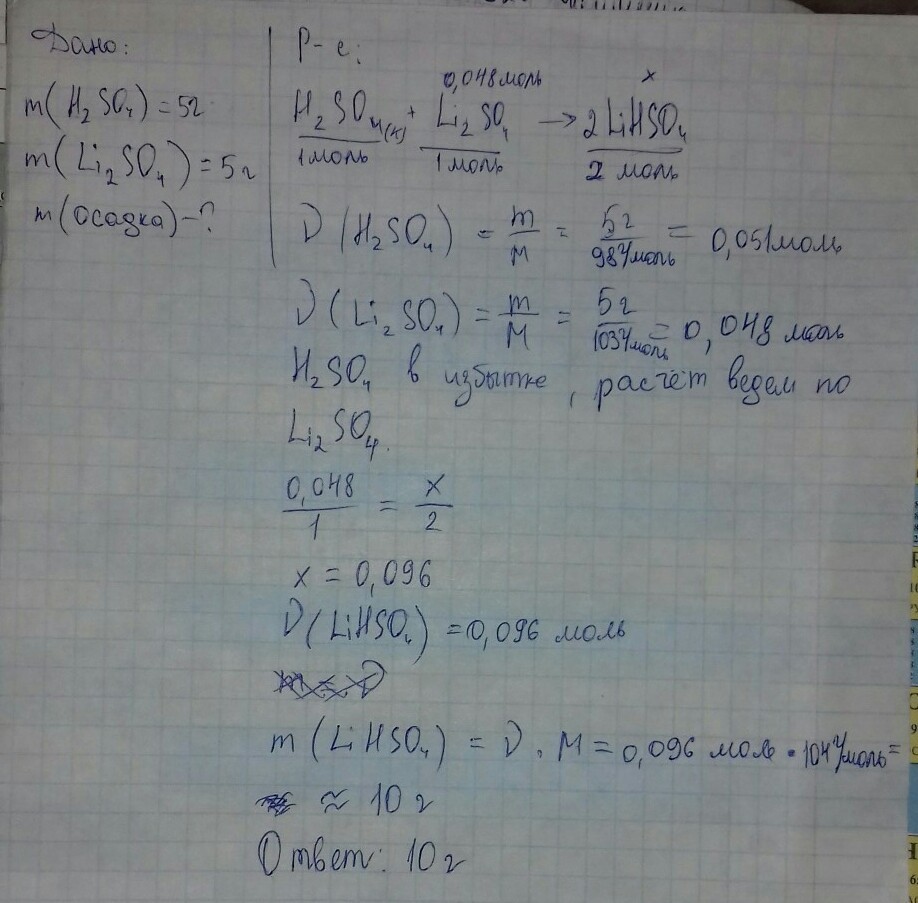 Дано:
m(H₂SO₄) = 5г
m(Li₂SO₄) = 5г
m(осадка) - ?
Р-е:
0,048 моль x
H₂SO₄(к) + Li₂SO₄ → 2LiHSO₄
1 моль 1 моль 2 моль
ν(H₂SO₄) = m/M = 5г/98г/моль = 0,051 моль
ν(Li₂SO₄) = m/M = 5г/103г/моль = 0,048 моль
H₂SO₄ в избытке, расчёт ведем по
Li₂SO₄.
0,048/1 = x/2
x = 0,096
ν(LiHSO₄) = 0,096 моль
m(LiHSO₄) = ν · M = 0,096 моль · 104г/моль =
≈ 10г
Ответ: 10г